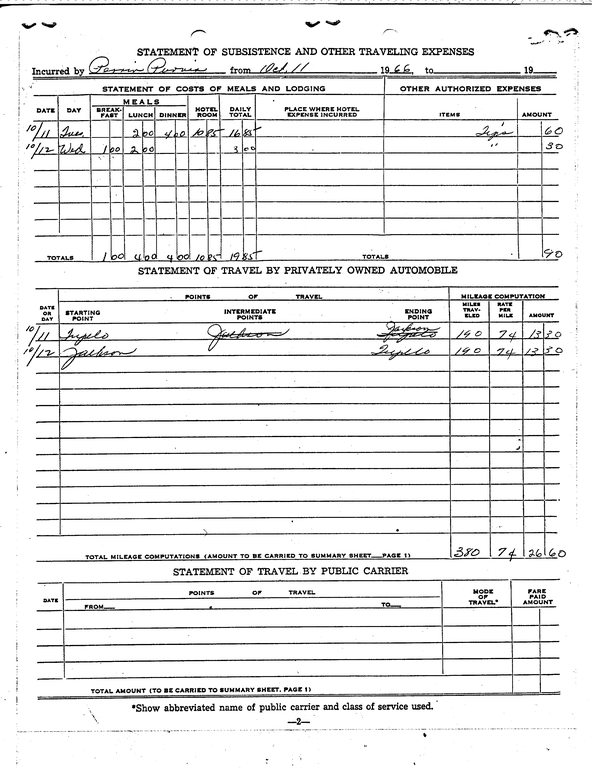 STATEMENT OF SUBSISTENCE AND OTHER TRAVELING EXPENSES
Incurred by Perrin Purvis from Oct. 11 1966, to 19
STATEMENT OF COSTS OF MEALS AND LODGING OTHER AUTHORIZED EXPENSES
DATE DAY MEALS BREAK-FAST LUNCH DINNER HOTEL ROOM DAILY TOTAL PLACE WHERE HOTEL EXPENSE INCURRED ITEMS AMOUNT
10/11 Tues 2 00 4 00 10 85 16 85 Tips 60
10/12 Wed 1 00 2 00 3 00 " 30
TOTALS 1 00 4 00 4 00 10 85 19 85 TOTALS 90
STATEMENT OF TRAVEL BY PRIVATELY OWNED AUTOMOBILE
POINTS OF TRAVEL MILEAGE COMPUTATION
DATE OR DAY STARTING POINT INTERMEDIATE POINTS ENDING POINT MILES TRAV-ELED RATE PER MILE AMOUNT
10/11 Tupelo Jackson Jackson Tupelo 190 7¢ 13 30
10/12 Jackson Tupelo 190 7¢ 13 30
TOTAL MILEAGE COMPUTATIONS (AMOUNT TO BE CARRIED TO SUMMARY SHEET—PAGE 1) 380 7¢ 26 60
STATEMENT OF TRAVEL BY PUBLIC CARRIER
DATE POINTS OF TRAVEL MODE OF TRAVEL* FARE PAID AMOUNT
FROM— TO—
TOTAL AMOUNT (TO BE CARRIED TO SUMMARY SHEET, PAGE 1)
*Show abbreviated name of public carrier and class of service used.
—2—